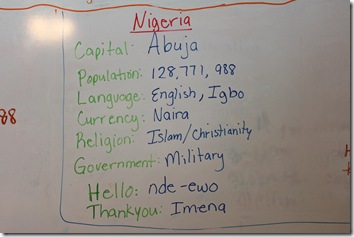 Nigeria
Capital: Abuja
Population: 128,771,988
Language: English, Igbo
Currency: Naira
Religion: Islam/Christianity
Government: Military
Hello: nde-ewo
Thankyou: Imena
88